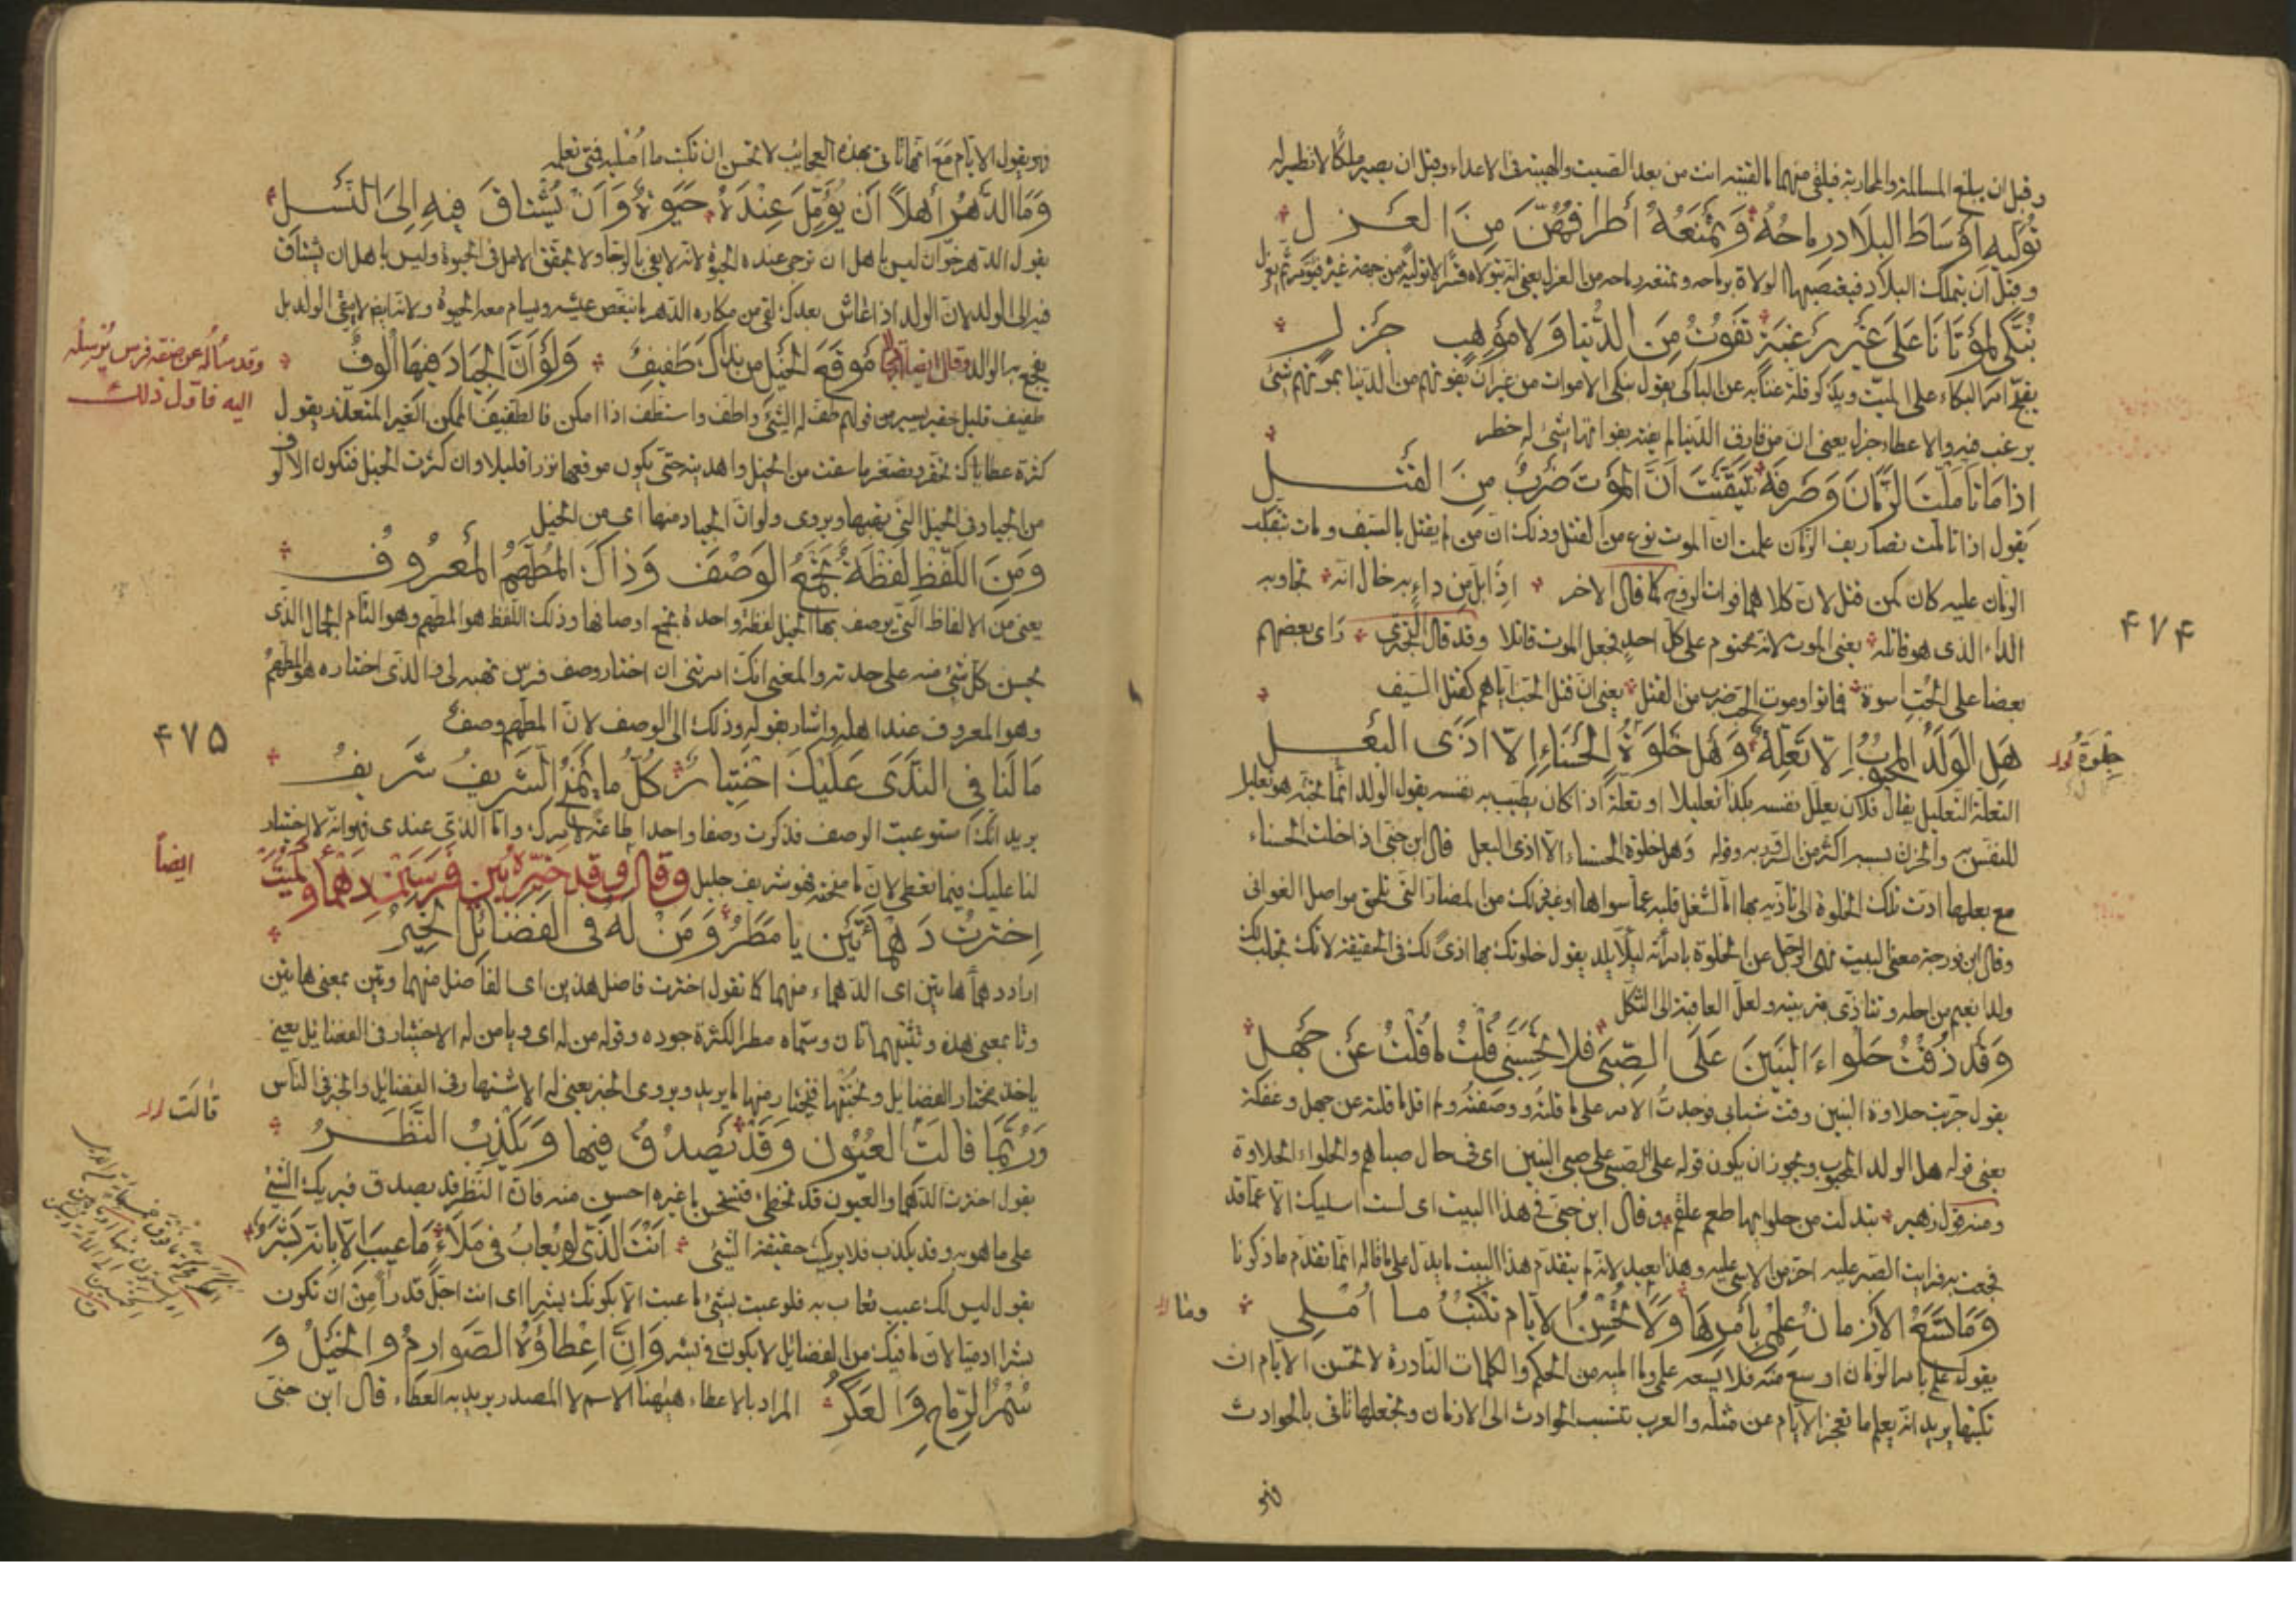 وقبل ان يبلغ المسالمة والمحاربة فيلقى منهما ما لقيته انت من بعد الصيت والهيبة فى الاعداء وقبل ان يصير ملكًا لا نظير له
تُوَلّيهِ اَوْسَاطَ البِلَادِ رِمَاحُهُ وَتَمْنَعُهُ أطرافُهُنَّ مِنَ العَزلِ
وقبل أن يتملك البلاد فيغتصبها الولاة برماحه وتمنعه رماحه من العزل يعنى انه يتولاه قسرًا لا تولية من جهة غيره
نُبَكّى لِمَوْتَانَا عَلَى غَيْرِ رَغْبَةٍ تَفُوتُ مِنَ الدُّنيا وَلا مَوْهِبٍ جَزلِ
يقبّح امر البكاء على الميت ويذكر قلة غنائه عن الباكى يقول نبكى الاموات من غير ان يفوتهم من الدنيا بموتهم شئ
يرغب فيه ولا عطاء جزل يعنى ان من فارق الدنيا لم يفته بفواتها شئ له خطر
اذا مَا تَأمَّلْتَ الزَّمَانَ وَصَرفَهُ تَيَقَّنْتَ اَنَّ المَوْتَ ضَرْبٌ مِنَ القَتْلِ
يقول اذا تاملت تصاريف الزمان علمت ان الموت نوع من القتل وذلك ان من لم يقتل بالسيف ومات بتقلب
الزمان عليه كان كمن قتل لان كلاهما فوات الروح كما قال الاخر اذا بل من داء به خال انه نجا وبه
الداء الذى هو قاتله يعنى الموت لانه محتوم على كل احد فجعل الموت قاتلا وقد قال البحترى راى بعضهم
بعضا على الحب اسوة فماتوا وموت الحب ضرب من القتل يعنى ان قتل الحب اياهم كقتل السيف
هَلِ الوَلَدُ المحبُوبُ اِلّا تَعِلّةٌ وَهَل خَلوَةُ الحَسْنَاءِ اِلّا اَذَى البَعْلِ
خلوة
التعلة التعليل يقال فلان يعلل نفسه بكذا تعليلا وتعلة اذا كان يطيب به نفسه يقول الولد انما محبته هو تعليل
للنفس به والحزن بسببه اكثر من السرور به وقوله وهل خلوة الحسناء الا اذى البعل قال ابن جنى اذا خلت الحسناء
مع بعلها ادت تلك الخلوة الى تاذيه بها اما لشغل قلبه عما سواها او غير ذلك من المضار التى تلحق مواصل الغوانى
وقال ابن فورجة معنى البيت نهى الرجل عن الخلوة بامرأته ليلا يلد يقول خلوتك بها اذى لك فى الحقيقة لانك تجلب لك
ولدا تغتم من اجله وتتاذى بتربيته ولعل العاقبة الى الثكل
وَقَد ذُقْتُ حَلوَاءَ البَنينَ عَلَى الصِّبَى فلا تَحْسَبَنّى قُلْتُ مَا قُلْتُ عَنْ جَهلِ
يقول جرّبت حلاوة البنين وقت شبابى فوجدتُ الامر على ما قلتُه ووصفتُه ولم اقل ما قلته عن جهل وغفلة
يعنى قوله هل الولد المحبوب ويجوز ان يكون قوله على الصبى على صبى البنين اى فى حال صباهم والحلواء الحلاوة
ومنه قول زهير تبدلت من حلوائها طعم علقم وقال ابن جنى فى هذا البيت اى لست اسليك الا عما قد
فجعت به فرايت الصبر عليه احزم من الاسى عليه وهذا بعيد لانه لم يتقدم هذا البيت ما يدل على ما قاله انما تقدم ما ذكرنا
وَمَا تَسَعُ الاَزمانُ عِلْمِى بِأَمرِهَا وَلَا تُحْسِنُ الايّام تَكتُبُ مـا أُمْـلِى
وما
يقول علمى بامر الزمان اوسع منه فلا يسعه علمى وما امليه من الحكم والكلمات النادرة لا تحسن الايام ان
تكتبها يريد انه يعلم ما تعجز الايام عن مثله والعرب تنسب الحوادث الى الازمان وتجعلها تاتى بالحوادث
۴۷۴
فهو يقول الايام مع اتيانها بهذه العجايب لا تحسن ان تكتب ما امليه فتى تعلمه
وَمَا الدَّهرُ أهلاً اَنْ يُؤَمَّلَ عِنْدَهُ حَيوةٌ وَاَنْ يُشْتاقَ فِيهِ اِلَى النَّسْلِ
يقول الدهر خوّان ليس باهل ان ترجى عنده الحيوة لانه لا يفى بالرجا ولا يحقق الامل فى الحيوة وليس باهل ان يشتاق
فيه الى الولد لان الولد اذا عاش بعدك لقى من مكاره الدهر ما ينغص عيشه ويسام معه الحيوة ولانه ايضا لا يبقى الولد بل
يفجع به الوالد وقال ايضا مَوقِعَ الخَيلِ مِن نَداكَ طَفيفُ وَلَوْ اَنَّ الجِيادَ فيها اُلُوفُ
وقد سأله عن صفة فرس يُرسله
اليه فقال ذلك
طفيف قليل حقير يسير من قولهم طف له الشئ واطف واستطف اذا امكن فالطفيف الممكن الغير المتعذر يقول
كثرة عطاياك تحقر وتصغر ما سقت من الخيل واهديته حتى يكون موقعها نزرا قليلا وان كثرت الخيل فتكون الالوف
من الجياد فى الخيل التى يهبها ويروى ولو ان الجياد منها اى من الخيل
وَمِنَ اللَّفْظِ لَفْظَةٌ تَجْمَعُ الوَصْفَ وَذَاكَ المُطَهَّمُ المَعْرُوفُ
يعنى من الالفاظ التى يوصف بها الخيل لفظة واحدة تجمع اوصافها وذلك اللفظ هو المطهم وهو التام الجمال الذى
يحسن كل شئ منه على حدته والمعنى انك امرتنى ان اختار وصف فرس تهبه لى فالذى اختاره هو المطهم
وهو المعروف عند اهله واشار بقوله وذلك الى الوصف لان المطهم وصف
۴۷۵
مَا لَنا فِى النَّدَى عَلَيْكَ اخْتِيارٌ كُلُّ ما يَمْنَحُ الشَّريفُ شَريفُ
يريد انك استوعبت الوصف فذكرت وصفا واحدا طاعة لامرك واما الذى عندى فهو انه لا اختيار
لنا عليك فيما تعطى لان ما منحته فهو شريف جليل وقال وقد خيّره بين فرسين دهماء وكميت
ايضاً
اِختَرتُ دَهْمَاءَتَيْنِ يا مَطَرُ وَمَنْ لَهُ فى الفَضَائِلِ الخِيَرُ
اراد دهماء هاتين اى الدهماء منهما كما تقول اخترت فاضل هذين اى الفاضل منهما وتين بمعنى هاتين
وتا بمعنى هذه وتثنيتهما تان وسماه مطرا لكثرة جوده وقوله من له اى ويا من له الاختيار فى الفضائل يعنى
ياخذ بمختار الفضائل ويجنبها فيختار منها ما يريد ويروى الخبر يعنى له الاشتهار فى الفضائل والخبر فى الناس
وَرُبَّمَا قالَتِ العُيُونُ وَقَدْ يَصْدُقُ فيها وَيَكْذِبُ النَّظَـرُ
قالت
يقول اخترت الدهما والعيون قد تخطى فتستحسن ما غيره احسن منه فان النظر قد يصدق فيريك الشئ
على ما هو به وقد يكذب فلا يريك حقيقة الشئ اَنْتَ الَّذى لو يُعابُ فى مَلَاءٍ مَا عِيبَ اِلّا بِأنّهُ بَشَرُ
يقول ليس لك عيب تعاب به فلو عبت بشئ ما عبت الا بكونك بشرا اى انت اجل قدراً من ان تكون
بشرا ادميا لان ما فيك من الفضائل لا يكون فى بشر وَاِنَّ اِعْطَاؤُهُ الصَّوارِمُ والخَيْلُ وَ
سُمْرُ الرِّماحِ وَالعَكَرُ المراد بالاعطاء هيهنا الاسم لا المصدر يريد به العطاء قال ابن جنى